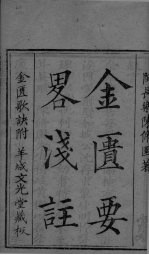 閩長樂陳修園著
金匱要
畧淺註
金匱歌訣附 羊城文光堂藏板